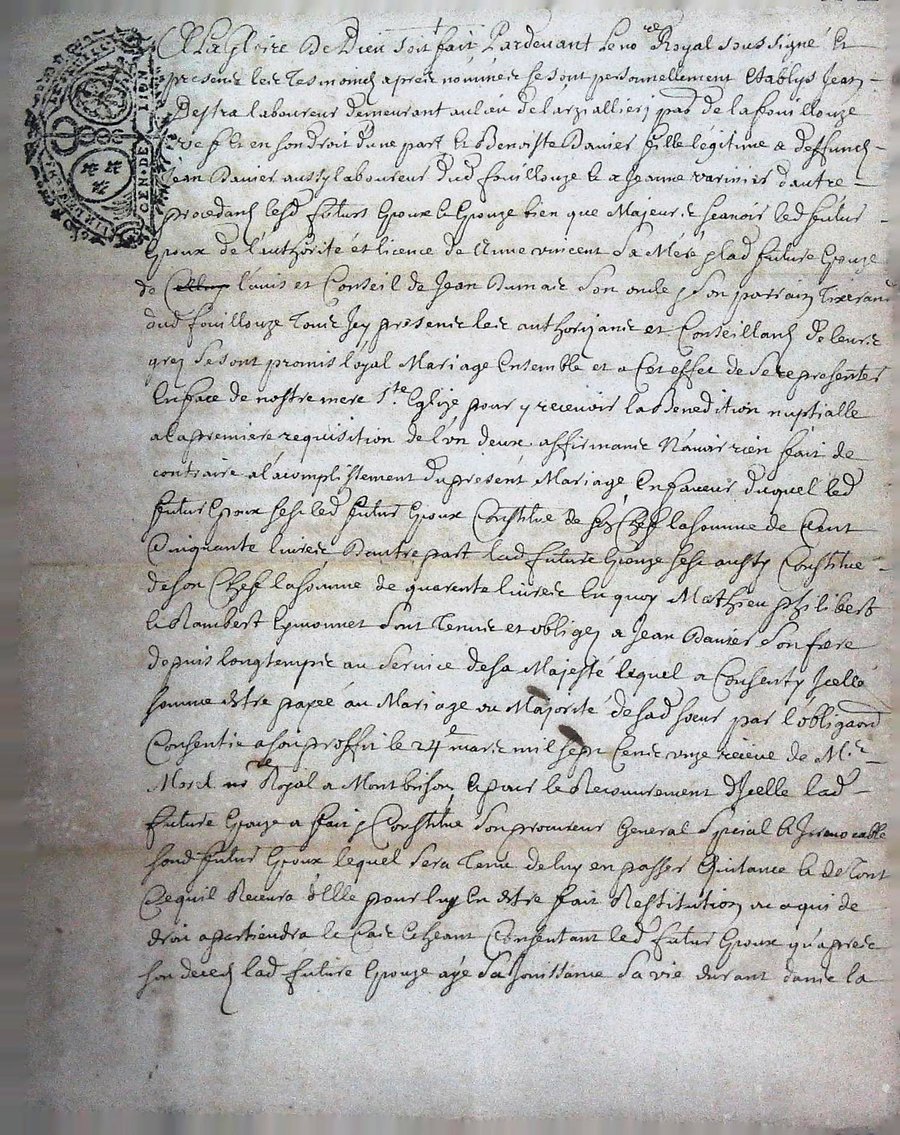 A La Gloire De Dieu soit fait Pardevant Le no.re Royal soussigné Et
presens les Tesmoins apres nommes se sont personnellement Etablys Jean
Destra laboureur demeurant au lieu de larzallier par de la fouillouze
et en son droit d'une part Et Benoiste Banier fille légitime a deffunct
Jean Banier aussy laboureur dud fouillouze Et a Jeanne varinier dautre
procedant lesd futurs Epoux Et Epouze bien que Majeurs scavoir led futur
Epoux de l'authorité et licence de Anne vincent sa Mere & lad future Epouze
de l'avis et Conseil de Jean Dumas son oncle & son parrain Tixerand
dud fouillouze Tous Icy presens les authorizans et Conseillants de leurs
grez se sont promis loyal Mariage Ensemble et a Cet effet de se representer
En face de nostre mere S.te Eglize pour y recevoir la Benedition nuptialle
a la premiere requisition de l'un deux affirmans N'avoir rien fait de
contraire a l'acomplissement du present Mariage En faveur duquel led
futur Epoux led futur Epoux Constitue de son Chef la somme de Cent
Cinquante livres Dautre part lad future Epouze sest aussy Constitue
de son Chef la somme de quarente livres En quoy Mathieu philibert
Et Rambert Epmonnet sont Tenus et obligez a Jean Banier son frere
depuis longtemps au service de sa Majesté lequel a Consenty Icelle
somme estre payee au Mariage ou Majorité de sad soeur par l'obligaon
Consentie a son proffit le 24.e mars mil sept Cens unze receue de M.e
Morel no.re Royal a Montbrison Et pour le Recouvrement d'Icelle lad
future Epouze a fait & Constitué son procureur General special Et Irrevocable
sond futur Epoux lequel sera Tenu de luy en passer Quitance Et de Tout
Ce quil Recevra d'Elle pour luy En estre fait Restitution ou a qui de
droit apartiendra le Cas Echeant Consentant led futur Epoux qu'apres
son deces lad future Epouze aye sa Jouissance sa vie durant dans la
GEN·DE·LION